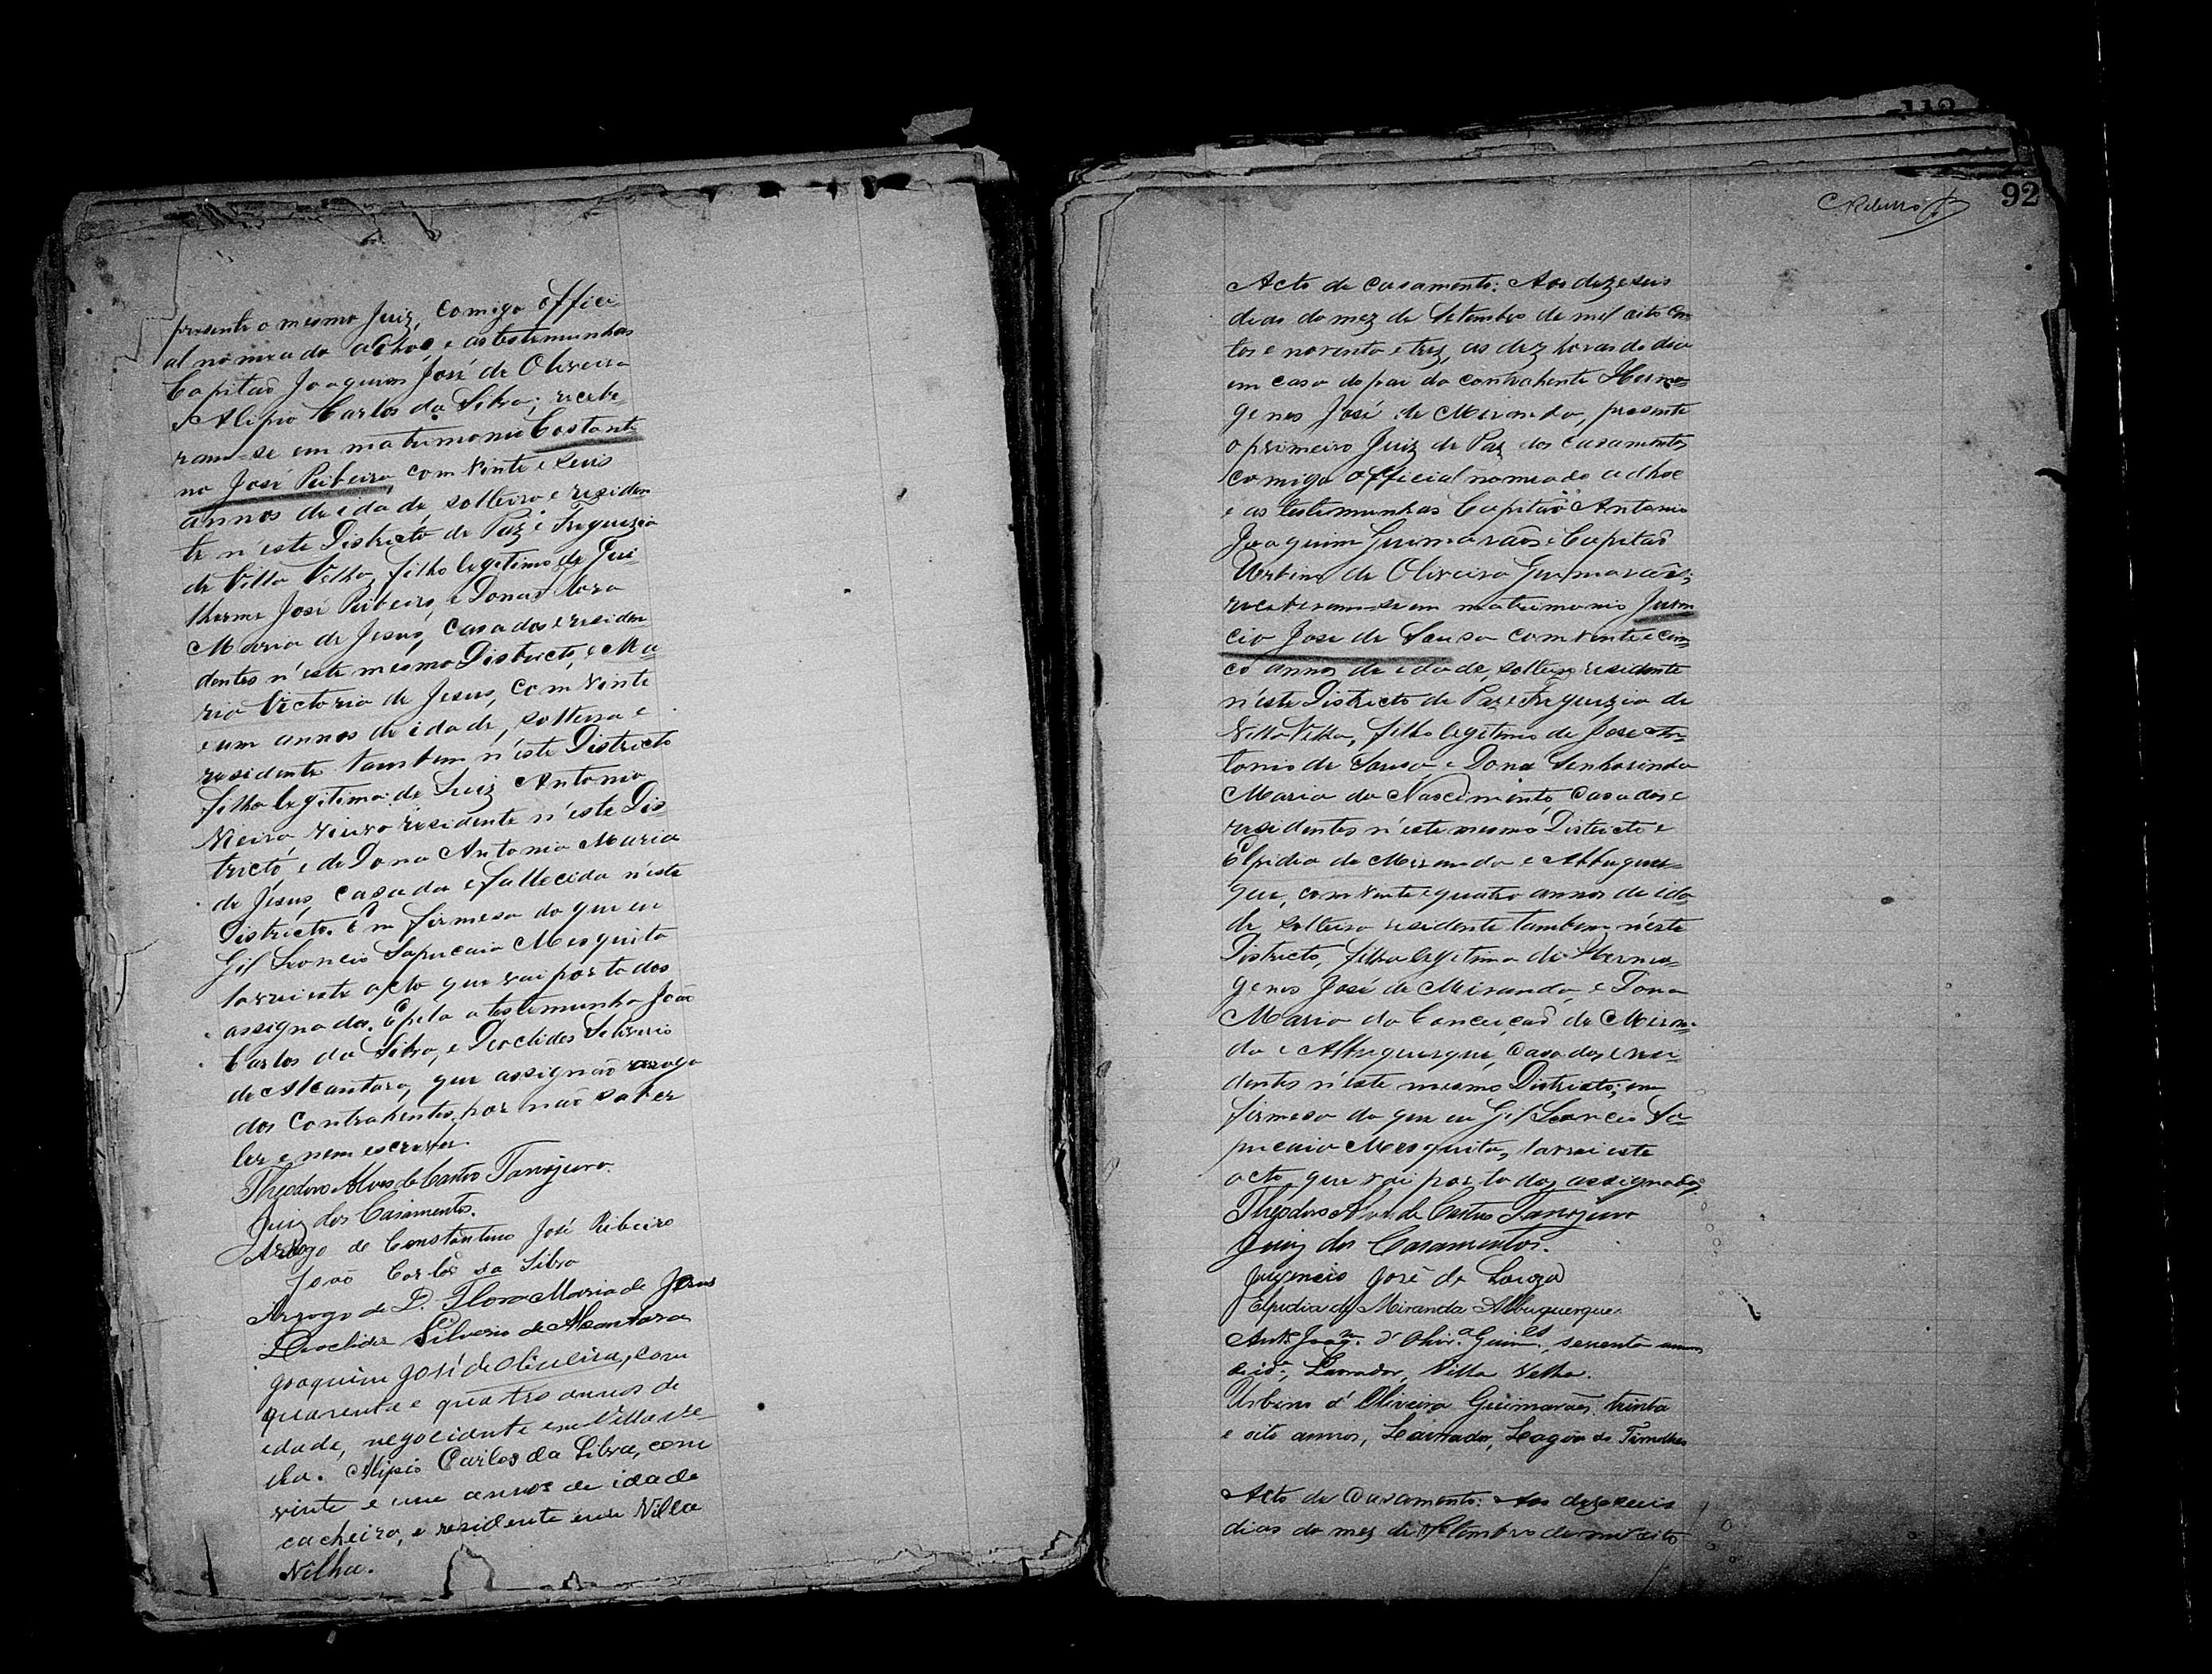 presente o mesmo Juiz, comigo offici
al nomeado adhoc, e as testemunhas
Capitaõ Joaquim José de Oliveira
e Alipio Carlos da Silva; recebe-
ram-se em matrimonio Costanti
no José Ribeiro, com vinte e seis
annos de idade, solteiro e residen
te n'este Districto de Paz e Freguezia
de Villa Velha, filho legitimo de Gui-
lherme José Ribeiro, e Dona Flora
Maria de Jesus, casados e residen
dentes n'este mesmo Districto, e Ma-
ria Victoria de Jesus, com vinte
e um annos de idade, solteira e
residente tambem n'este Districto
filha legitima de Luiz Antonio
Vieira viuvo residente n'este Dis-
tricto, e de Dona Antonia Maria
de Jesus, casada e fallecida n'este
Districto. Em firmesa do que eu
Gil Leoncio Sapucaia Mesquita
lavrei este acto que vai por todos
assignado. E pela a testemunha João
Carlos da Silva, e Deoclides Silverio
de Alcantara, que assignão arogo
dos contrahentes por naõ saber
ler e nem escrever.
Theodoro Alves de Castro Tanajura.
Juiz dos Casamentos.
Arogo de Constantino José Ribeiro
João Carlos da Silva
Arrogo de D. Flora Maria de Jesus
Deoclides Silverio de Alcantara
Joaquim José de Oliveira, com
quarenta e quatro annos de
idade, negociante em Villa Ve-
lha. Alipio Carlos da Silva, com
vinte e um annos de idade
cacheiro, e residente em Villa
Velha.
C Ribeiro
92
112
Acto de casamento: Aos dezeseis
dias do mez de Setembro de mil oito cen
tos e noventa e trez, as dez horas do dia
em casa do pai da contrahente Herme-
genes José de Miranda, presente
o primeiro Juiz de Paz dos casamentos
comigo official nomeado adhoc
e as testemunhas Capitaõ Antonio
Joaquim Guimarães e Capitaõ
Urbino de Oliveira Guimarães;
receberam-se em matrimonio Juven
cio José de Sousa com vinte e cin-
co annos de idade, solteiro residente
n'este Districto de Paz e Freguezia de
Villa Velha, filho legitimo de José An-
tonio de Sousa, e Dona Senhorinha
Maria do Nascimento, casados e
residentes n'este mesmo Districto e
Elpidia de Miranda e Albuquer-
que, com vinte e quatro annos de ida-
de solteira residente tambem n'este
Districto, filha legitima de Herme-
genes José de Miranda, e Dona
Maria da Conceição de Miran-
da e Albuquerque, casados e resi-
dentes n'este mesmo Districto; em
firmesa do que eu Gil Leoncio Sa-
pucaia Mesquita, lavrei este
acto que vai por todos assignados
Theodoro Alves de Castro Tanajura
Juiz dos Casamentos.
Juvencio José de Souza
Elpidia de Miranda Albuquerque.
Antº Joaqm. d'Olivra. Guimes., sessenta annos
de idº, Lavrador, Villa Velha.
Urbino d'Oliveira Guimarães, trinta
e oito annos, Lavrador, Lagôa do Timotheo
Acto de Casamento: Aos dezeseis
dias do mez de Setembro de mil oito